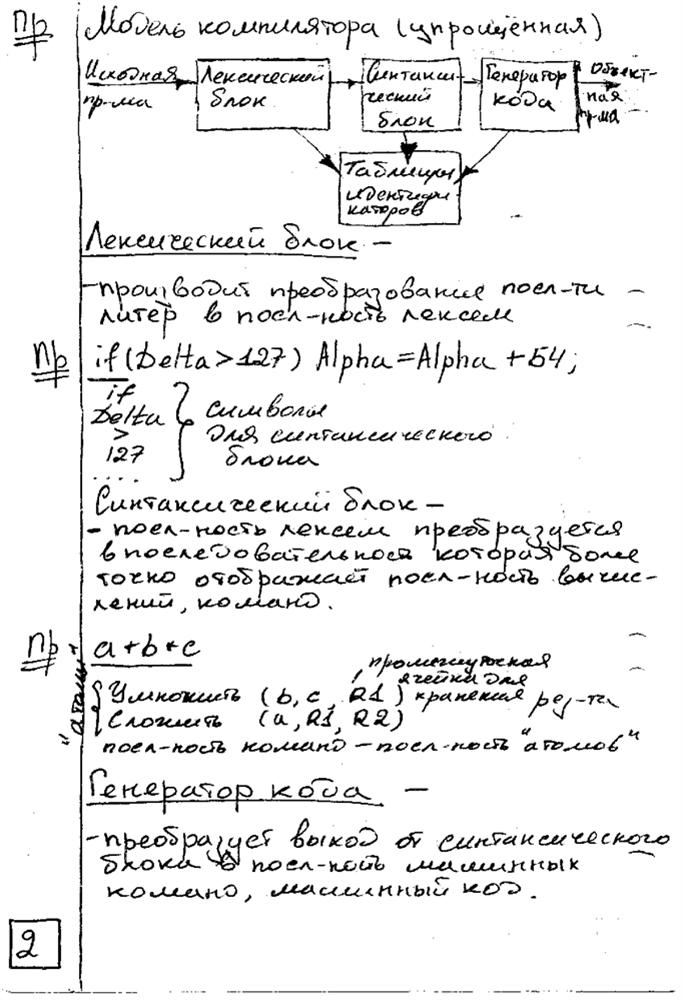 Пр Модель компилятора (упрощённая)
Исходная пр-ма
Лексический блок
Синтаксический блок
Генератор кода
Объектная пр-ма
Таблицы
идентифи
каторов
Лексический блок –
-производит преобразование посл-ти
литер в посл-ность лексем
Пр if(Delta>127) Alpha=Alpha+54;
if
Delta
>
127
....
символы
для синтаксического
блока
Синтаксический блок –
- посл-ность лексем преобразуется
в последовательность которая более
точно отображает посл-ность вычис-
лений, команд.
Пр a+b*c
промежуточная
ячейка для
"атомы"
Умножить (b,c, R1) хранения рез-та
Сложить (a,R1,R2)
посл-ность команд – посл-ность "атомов"
Генератор кода –
-преобразует выход от синтаксического
блока в посл-ность машинных
команд, машинный код.
2